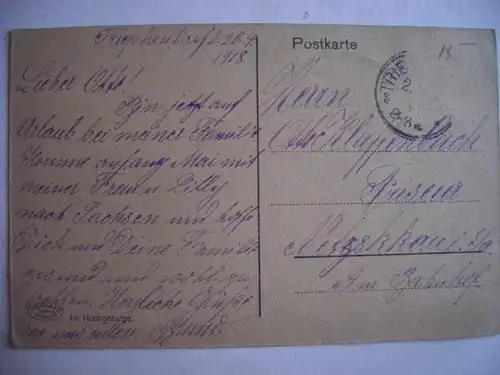 d. 20.4.
1918.
Lieber Otto!
Bin jetzt auf
Urlaub bei meiner Familie
Komme anfang Mai mit
meiner Frau u. Lilly
nach Sachsen und hoffe
Dich und Deine Familie
gesund und wohl zu
sehen. Herzliche Grüße
von uns allen.
Im Hochgebirge.
Postkarte
TRIE
Herrn
Otto Klappenbach
Friseur
Netzschkau i. Sa.
Am Bahnhof